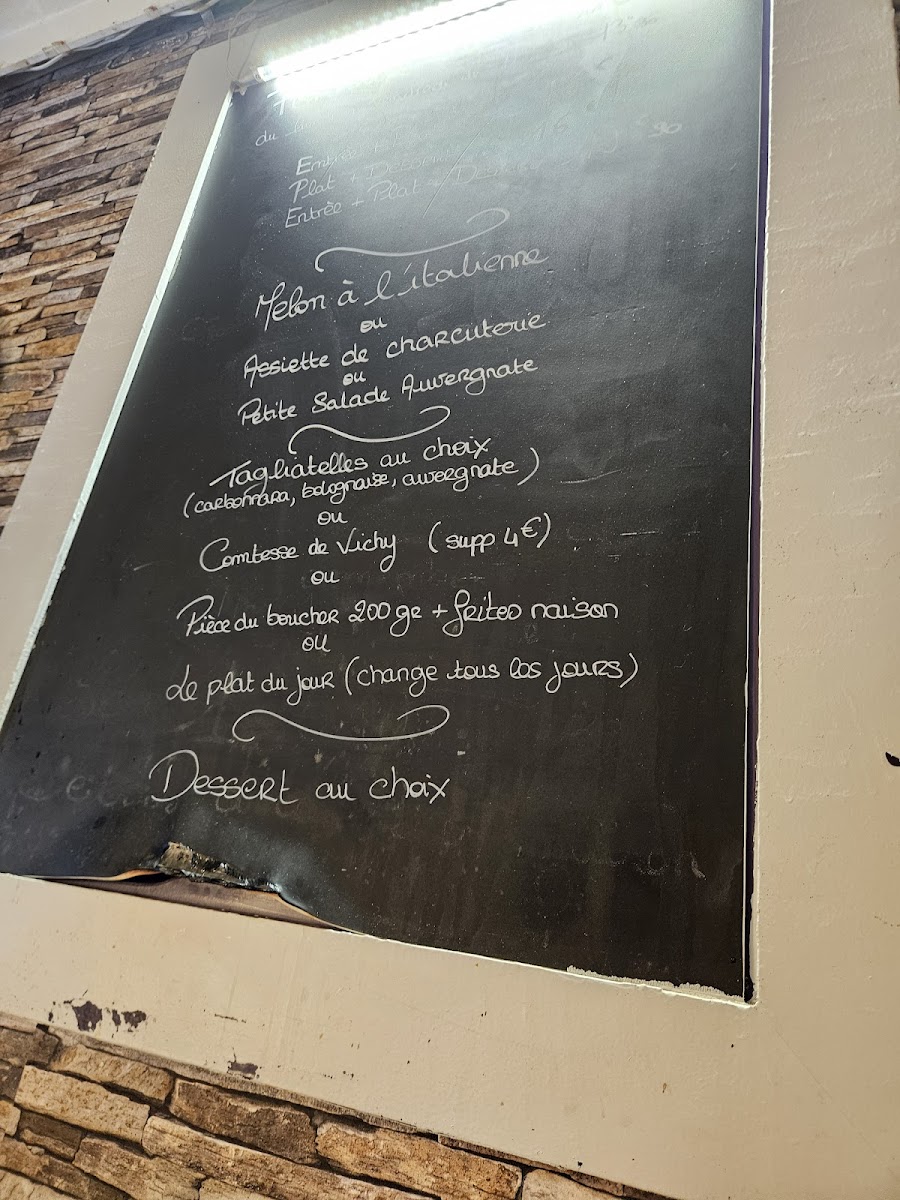 13
du
Entrée +
Plat + Dessert
Entrée + Plat + Dessert 90
Melon à l'italienne
ou
Assiette de charcuterie
ou
Petite Salade Auvergnate
Tagliatelles au choix
(carbonnara, bolognaise, auvergnate)
ou
Comtesse de Vichy (supp 4€)
ou
Pièce du boucher 200 gr + frites maison
ou
Le plat du jour (change tous les jours)
Dessert au choix